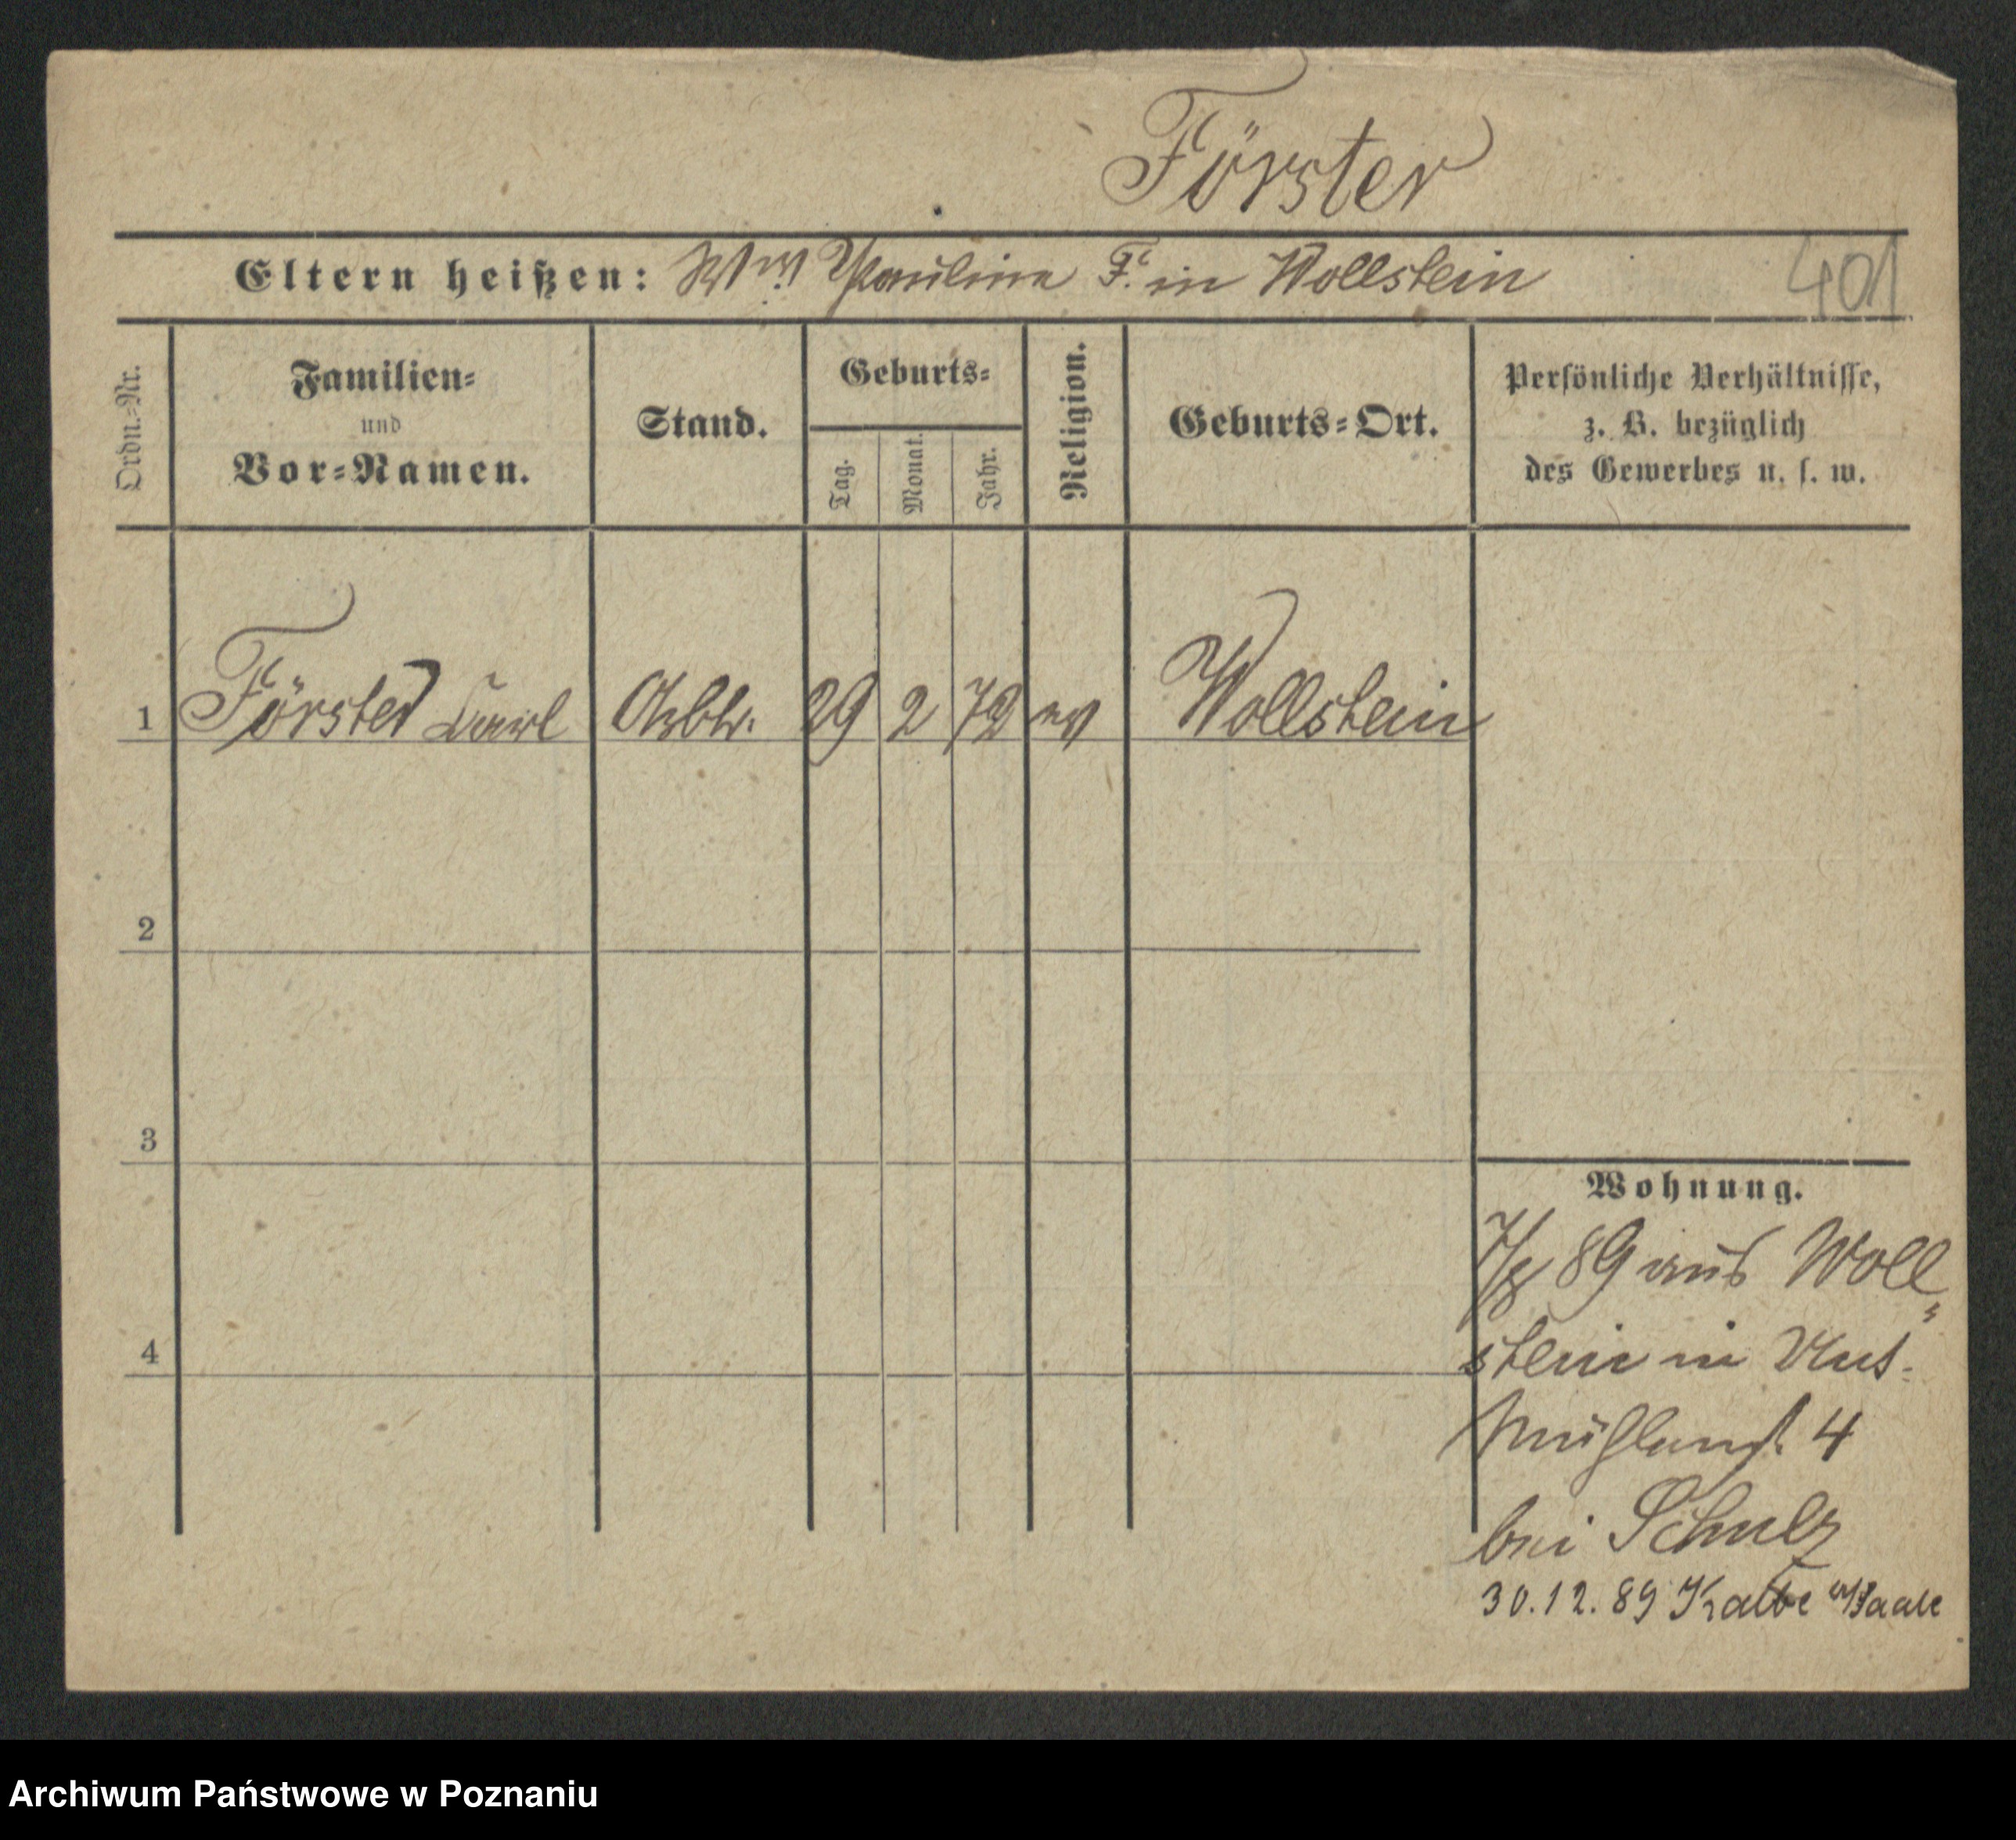 Förster
Eltern heißen: Wwe Pauline F. in Wollstein 401
Ordn.-Nr.
Familien-
und
Vor-Namen.
Stand.
Geburts-
Tag.
Monat.
Jahr.
Religion.
Geburts-Ort.
Persönliche Verhältnisse,
z. B. bezüglich
des Gewerbes u. s. w.
1 Förster Carl Arbtr. 29 2 72 ev Wollstein
2
3
4
Wohnung.
7/8 89 aus Woll
stein in
4
bei Schulz
30.12.89 Kalbe a/Saale
Archiwum Państwowe w Poznaniu